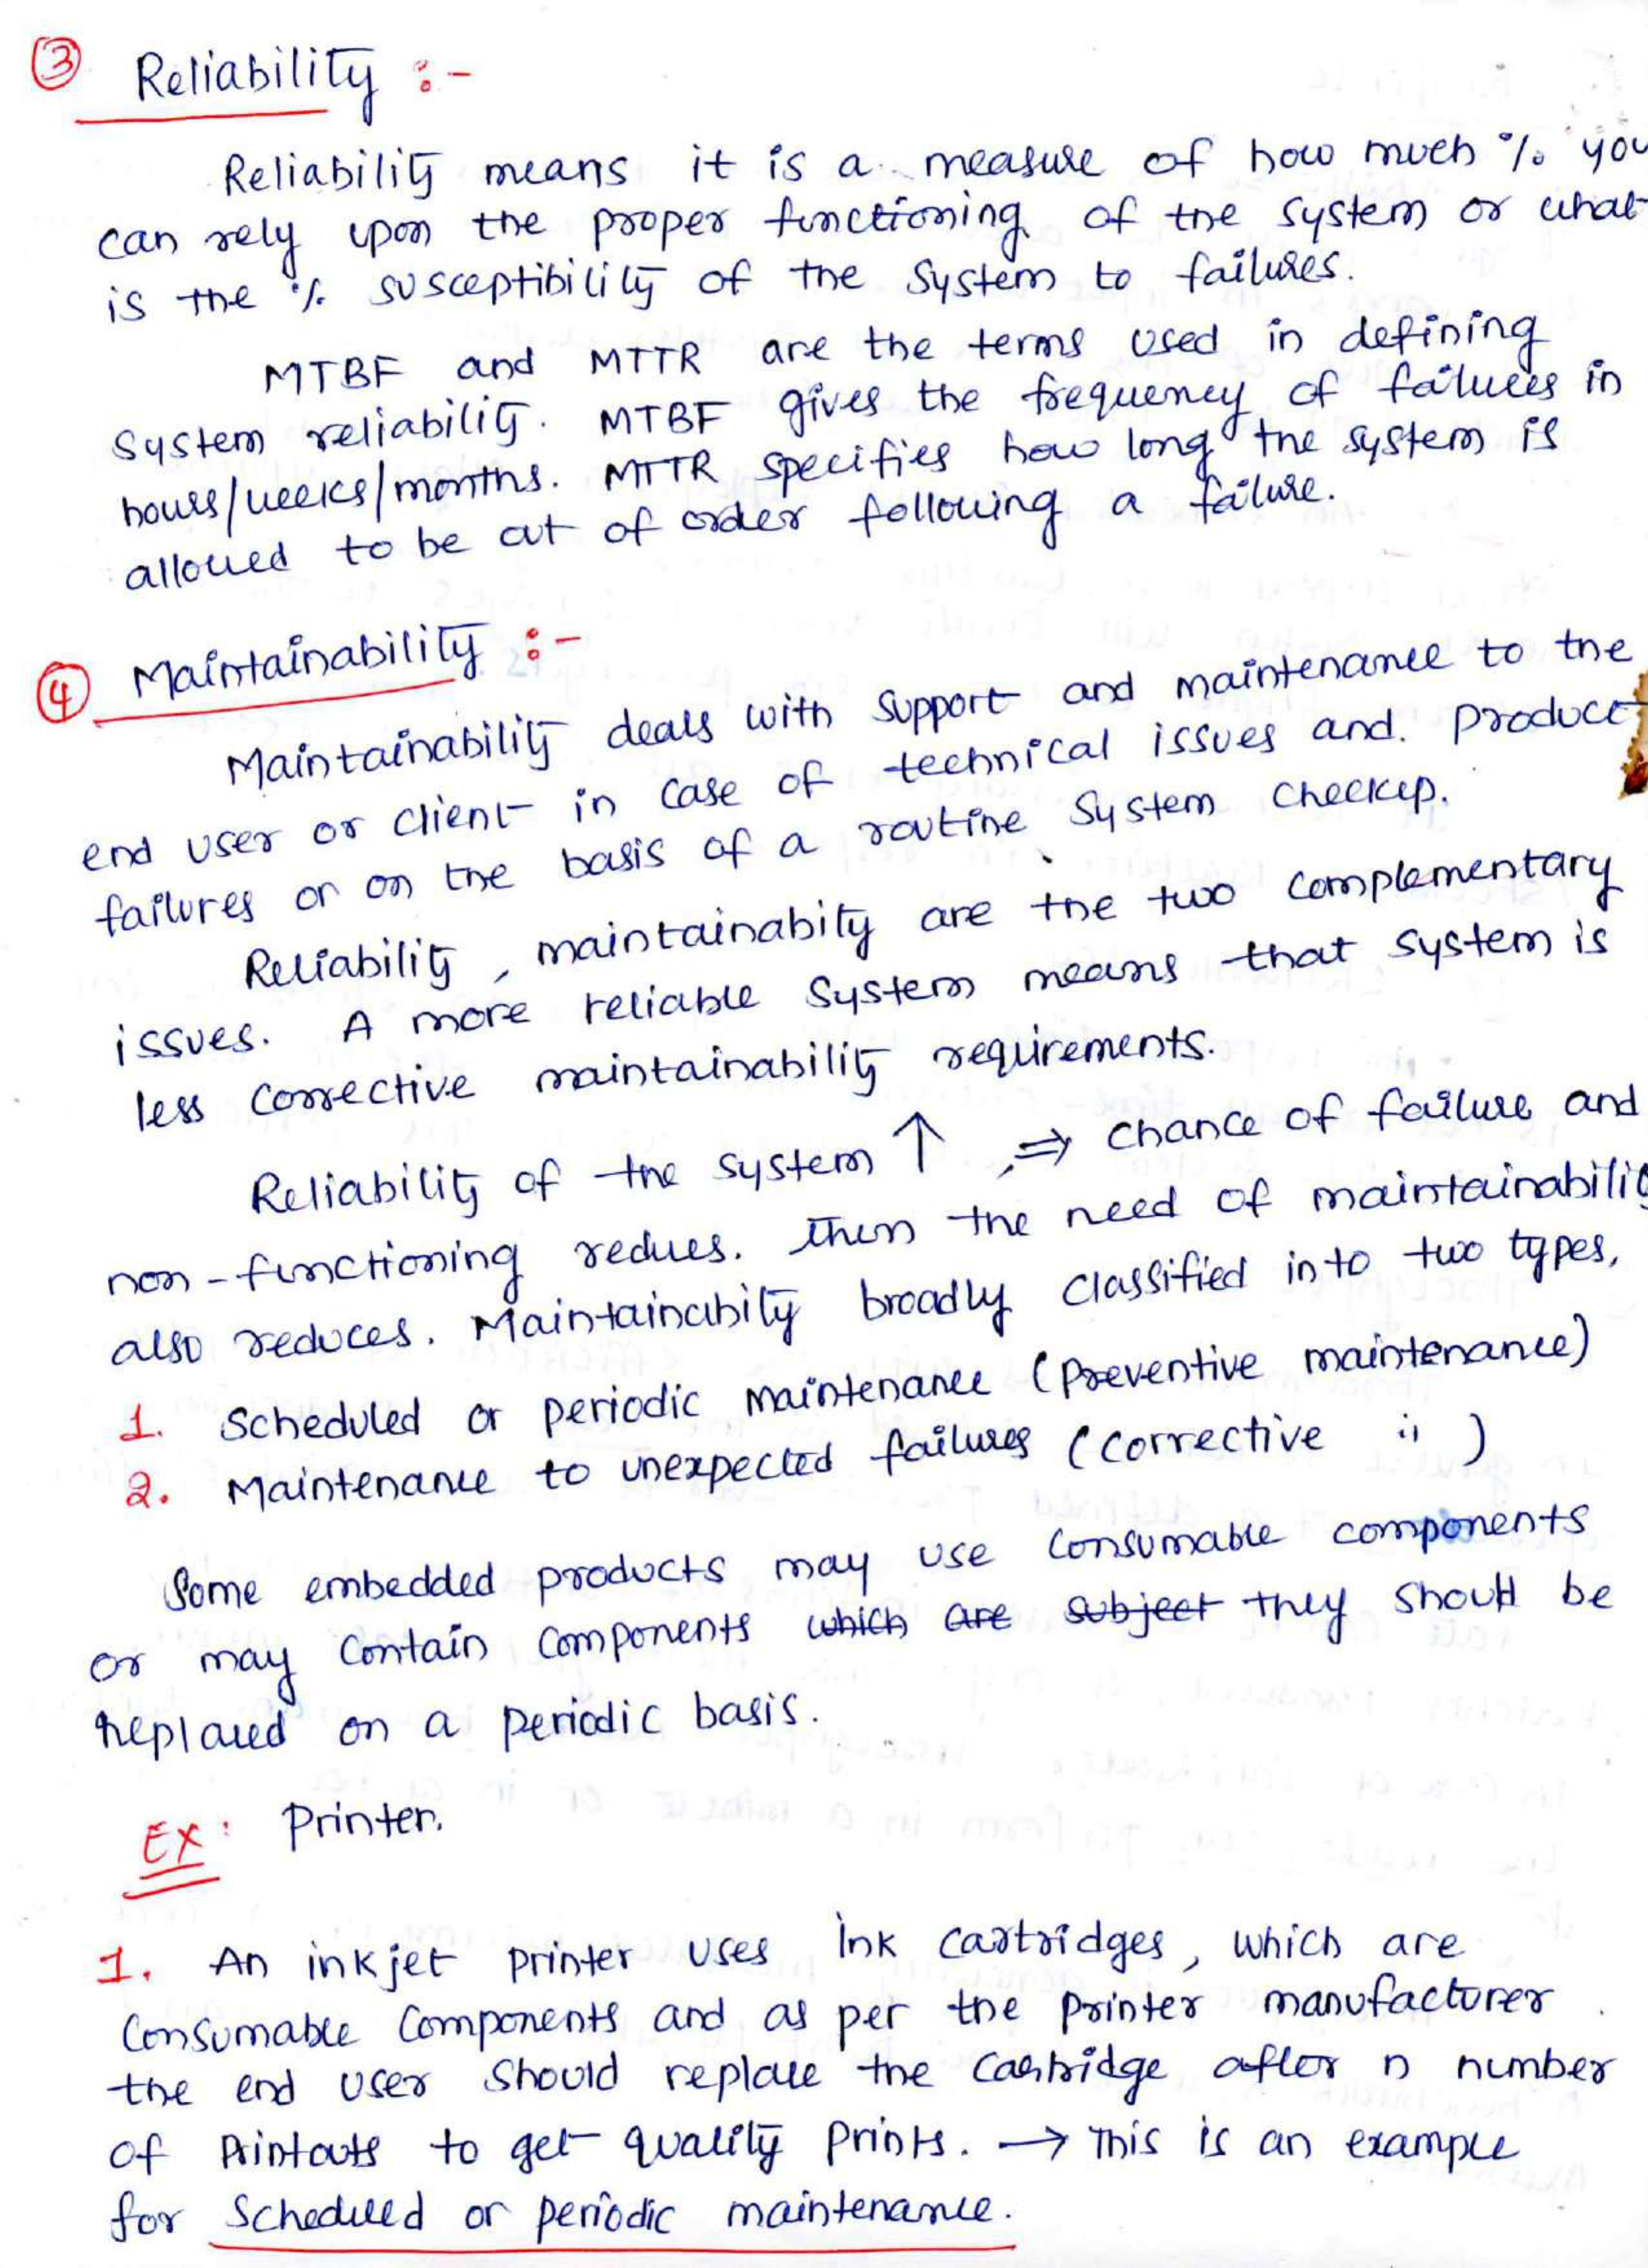 ③ Reliability :-
Reliability means it is a measure of how much % you
can rely upon the proper functioning of the system or what
is the % susceptibility of the system to failures.
MTBF and MTTR are the terms used in defining
system reliability. MTBF gives the frequency of failures in
hours/weeks/months. MTTR specifies how long the system is
allowed to be out of order following a failure.
④ Maintainability :-
Maintainability deals with support and maintenance to the
end user or client in case of technical issues and product
failures or on the basis of a routine system checkup.
Reliability, maintainabity are the two complementary
issues. A more reliable system means that system is
less corrective maintainability requirements.
Reliability of the system ↑, ⇒ chance of failure and
non-functioning redues. then the need of maintainability
also reduces. Maintainabity broadly classified into two types,
1. Scheduled or periodic maintenance (preventive maintenance)
2. Maintenance to unexpected failures (corrective 〃)
Some embedded products may use consumable components
or may contain components which are subject they should be
replaced on a periodic basis.
EX: Printer.
1. An inkjet printer uses ink cartridges, which are
consumable components and as per the printer manufacturer
the end user should replace the cartridge after n number
of printouts to get quality prints. → This is an example
for scheduled or periodic maintenance.